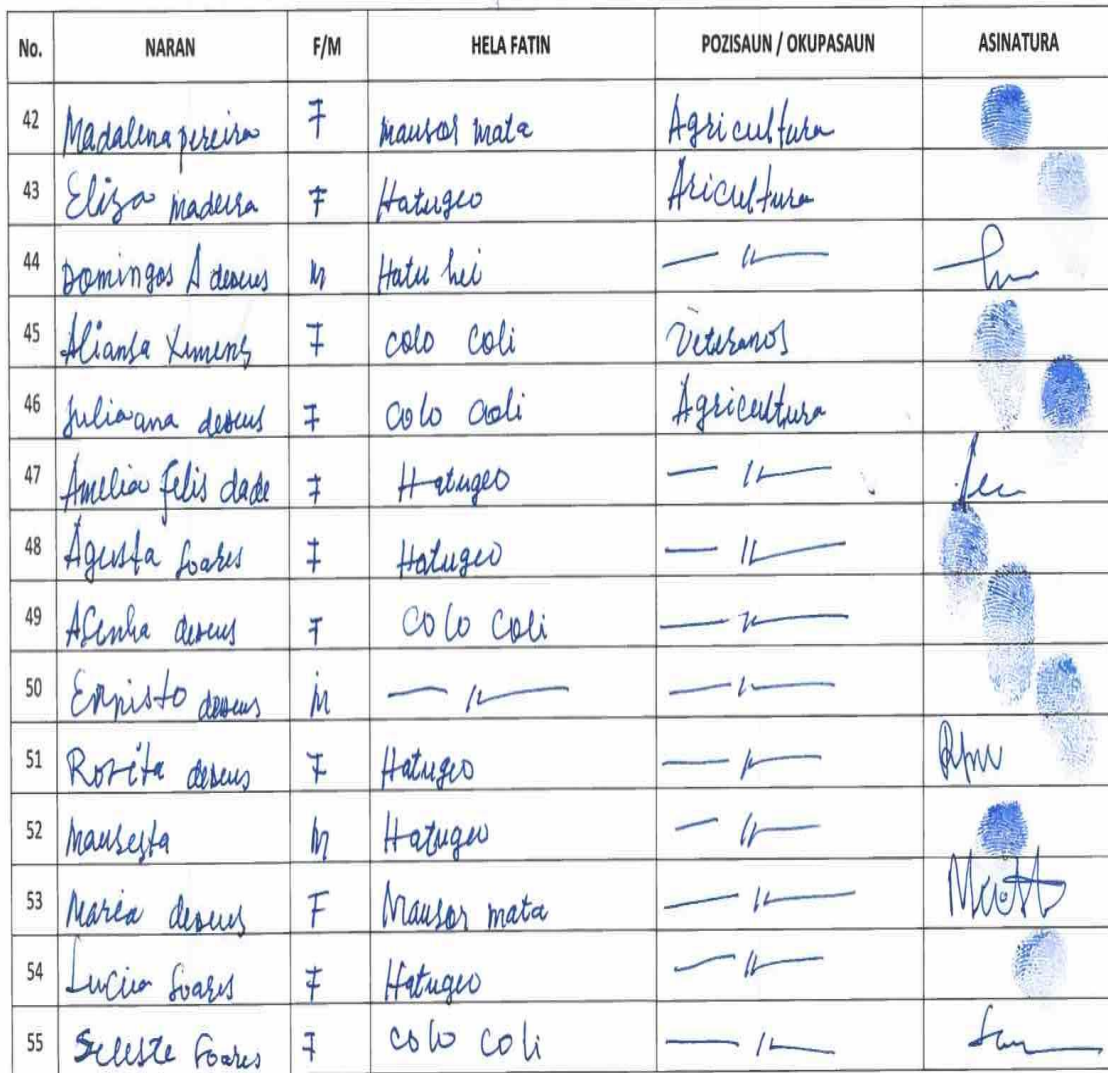 No. NARAN F/M HELA FATIN POZISAUN / OKUPASAUN ASINATURA
42 Madalena pereira F mausor mata Agricultura
43 Eliza madeira F Hatugeo Aricultura
44 Domingos A deseus M Hatu hei — 11 —
45 Aliansa Ximens F colo coli Veteranos
46 Juliaana deseus F colo coli Agricultura
47 Amelia felis dade F Hatugeo — 11 —
48 Agusta Soares F Hatugeo — 11 —
49 Asenha deseus F colo coli — 11 —
50 deseus M — 11 — — 11 —
51 Rosita deseus F Hatugeo — 11 —
52 Mausesta M Hatugeo — 11 —
53 Maria deseus F Mausor mata — 11 —
54 Lucia Soares F Hatugeo — 11 —
55 Seleste Soares F colo coli — 11 —